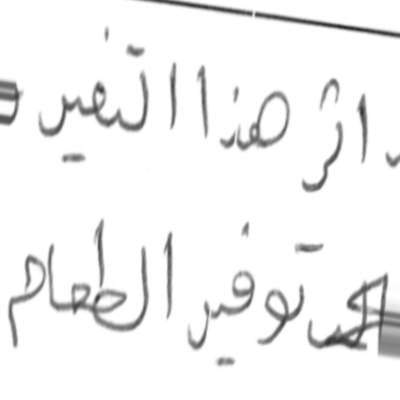 اثر هذا التغير
توفير الطعام